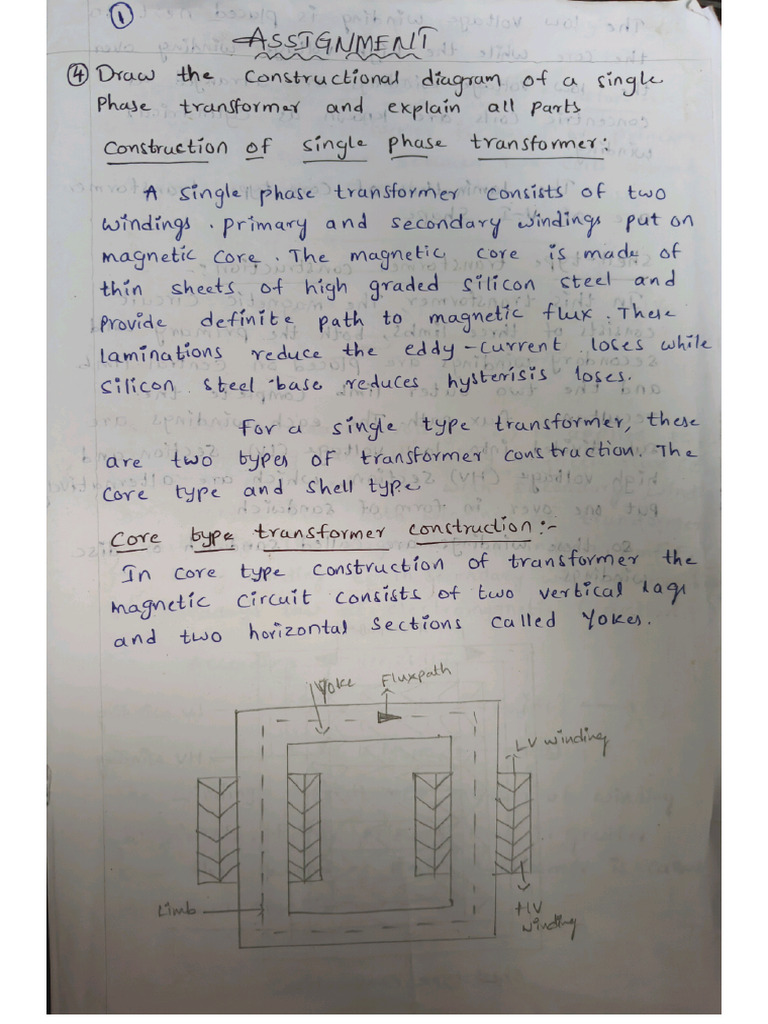 1
ASSIGNMENT
4 Draw the constructional diagram of a single
Phase transformer and explain all parts
Construction of single phase transformer:
A single phase transformer consists of two
windings. primary and secondary windings put on
magnetic core. The magnetic core is made of
thin sheets of high graded silicon steel and
provide definite path to magnetic flux. These
laminations reduce the eddy-current loses while
silicon steel base reduces hysterisis loses.
For a single type transformer, these
are two types of transformer construction. The
core type and shell type
Core type transformer construction:-
In core type construction of transformer the
magnetic circuit consists of two vertical lags
and two horizontal sections called Yokes.
Yoke
Fluxpath
LV winding
Limb
HV
winding